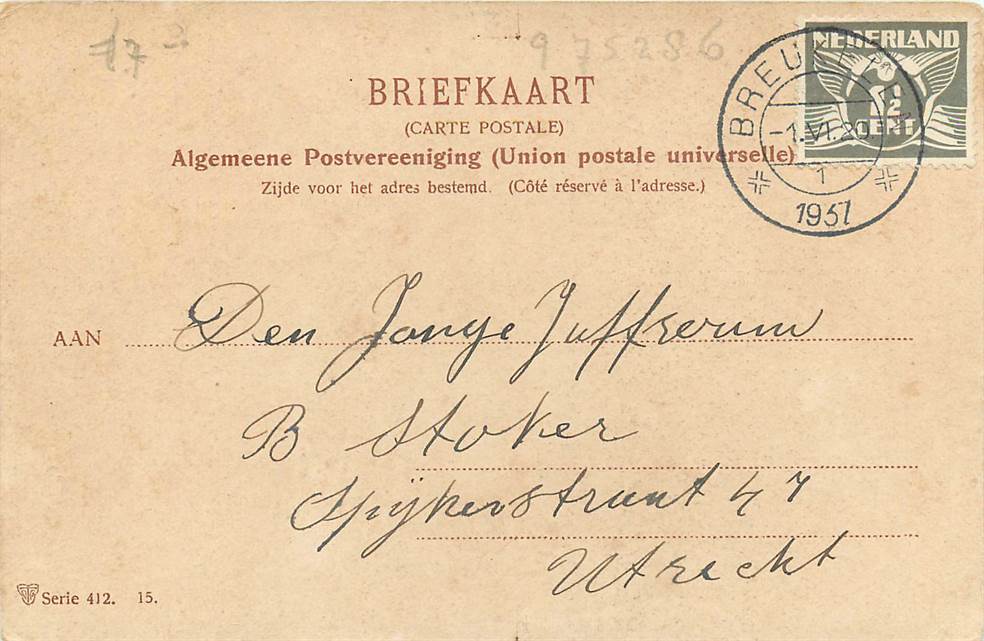 17 3
975286
NEDERLAND
1½
CENT
BREUKELEN
-1.VI.20
1
1937
BRIEFKAART
(CARTE POSTALE)
Algemeene Postvereeniging (Union postale universelle)
Zijde voor het adres bestemd. (Côté réservé à l'adresse.)
AAN Den Jonge Juffroum
B Stoker
Spijkerstraat 47
Utrecht
Serie 412. 15.